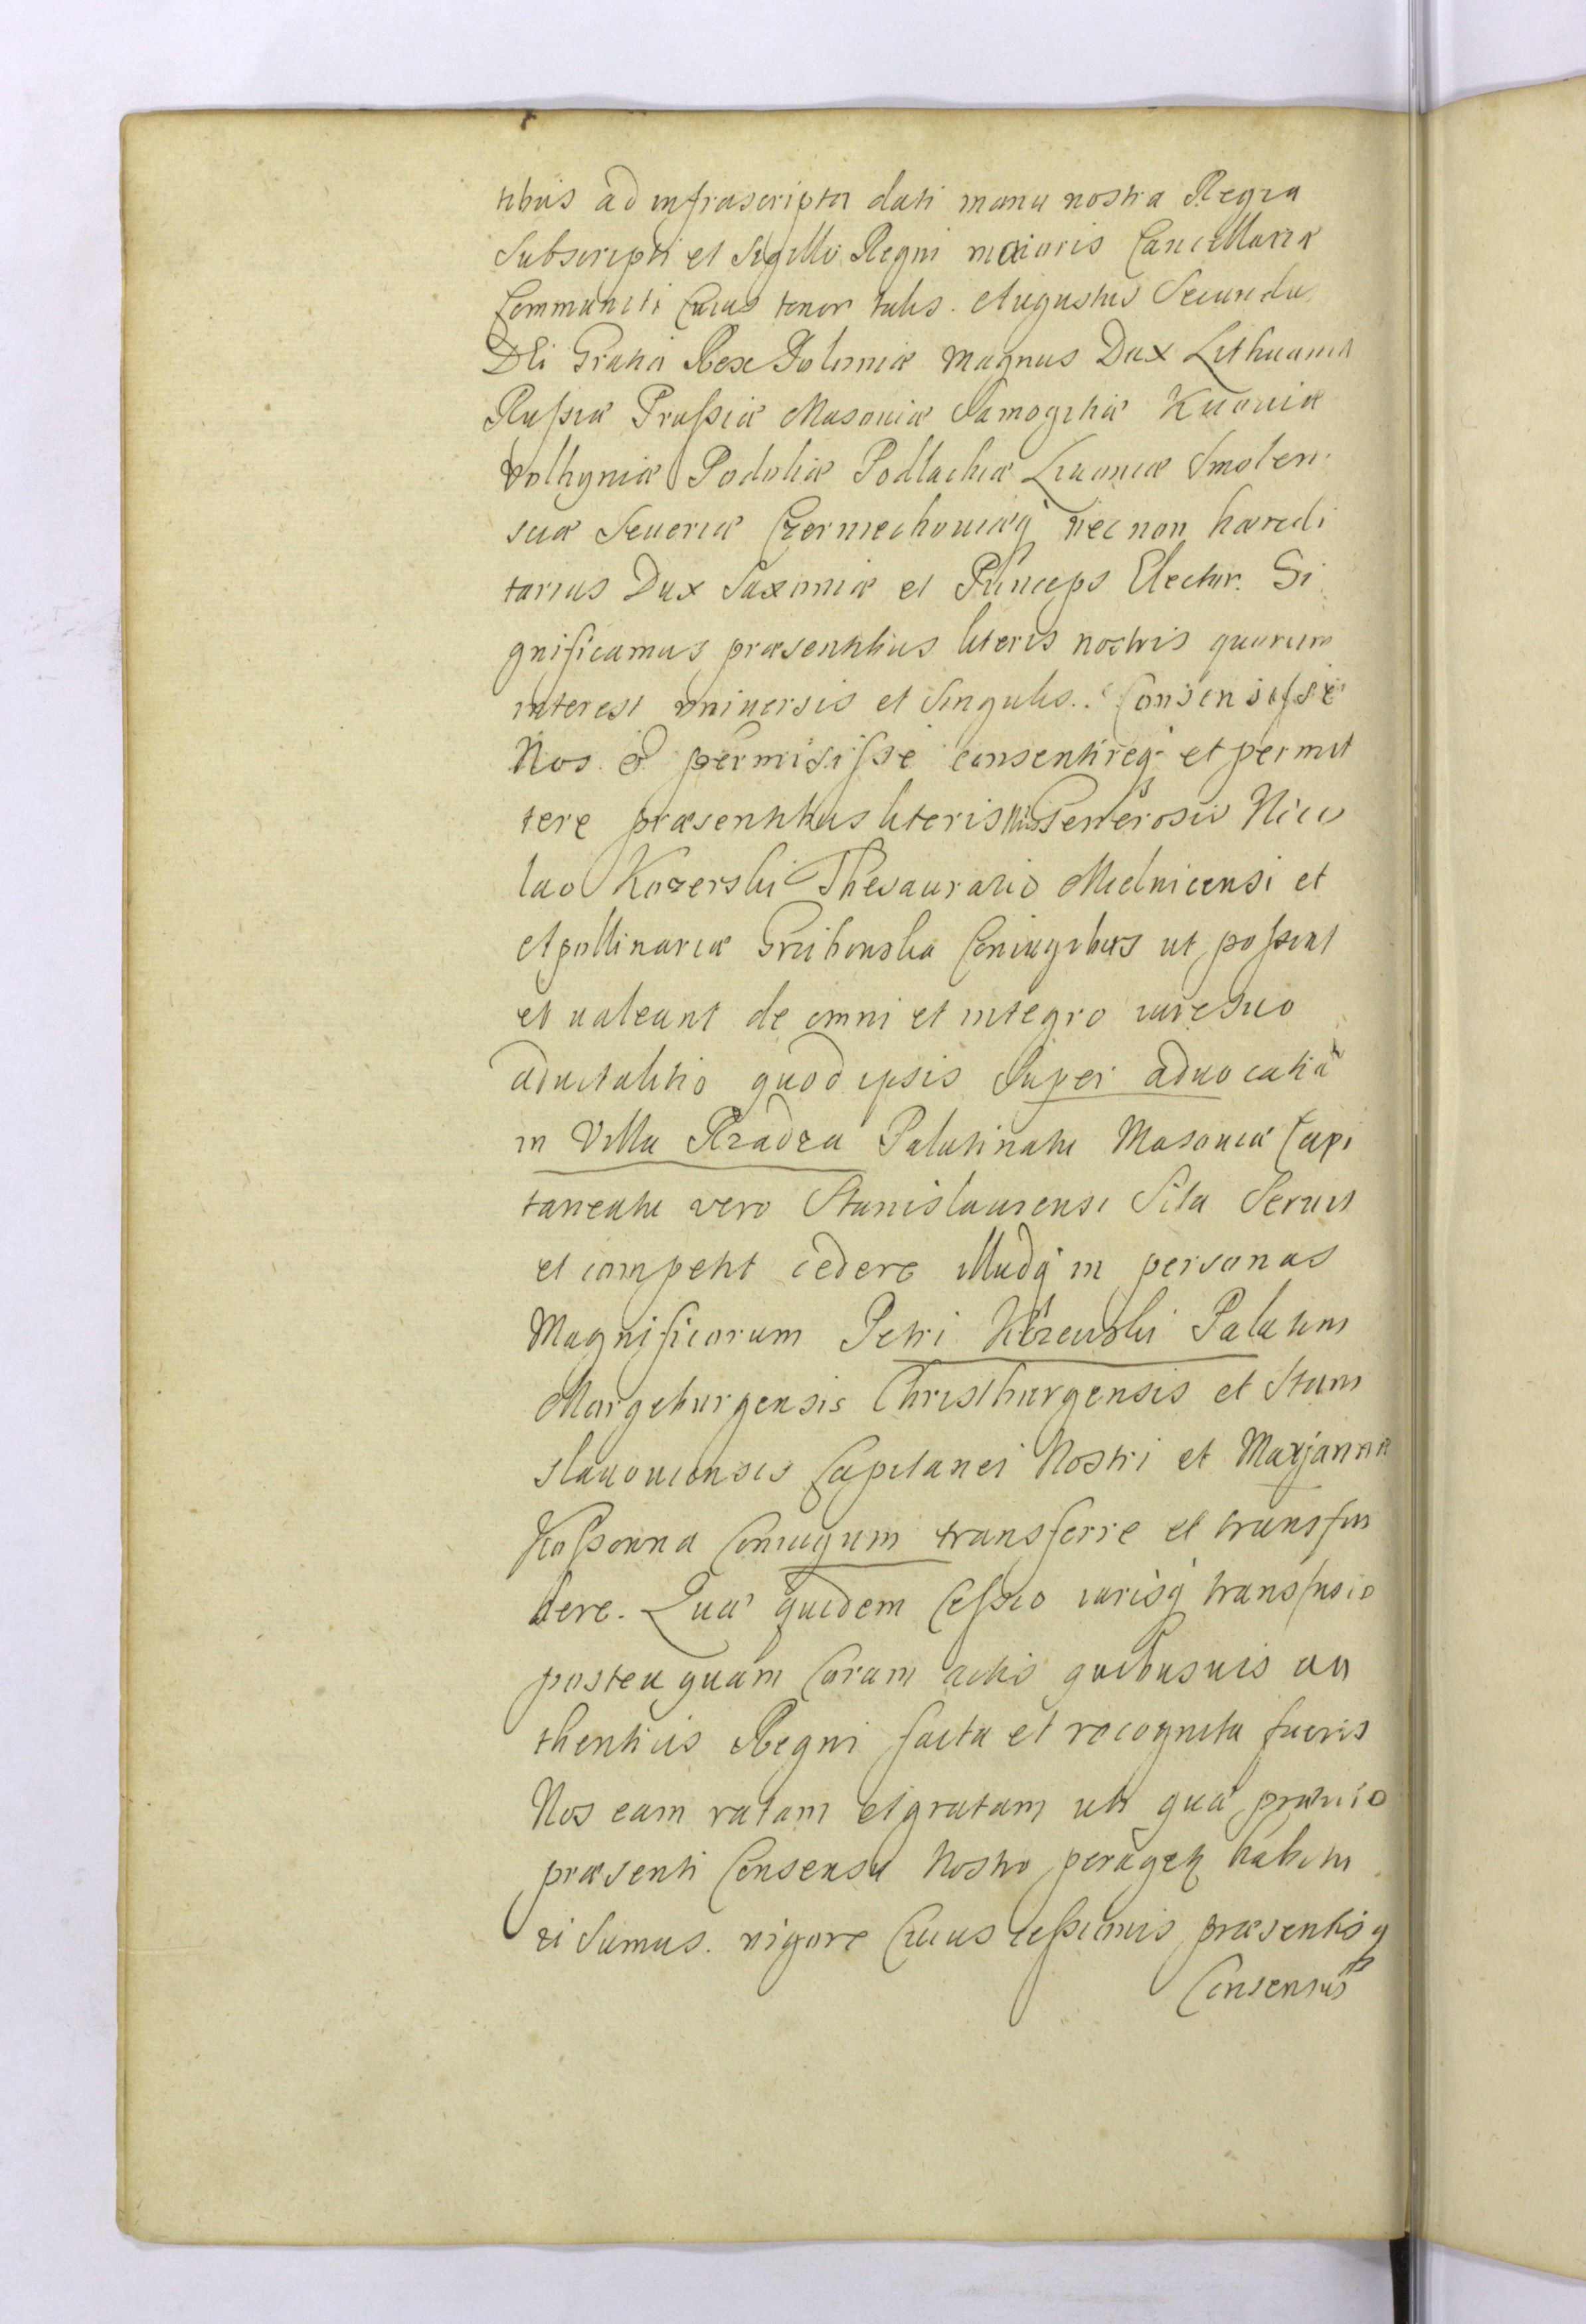 tibus ad infrascripta dati manu nostra Regia
Subscripti et Sigillo Regni maioris Cancellariæ
Communiti Cuius tenor talis. Augustus Secundus
DEi Gratia Rex Poloniæ Magnus Dux Lithuaniæ
Rußiæ Prußiæ Masoviæ Samogitiæ Kuoviæ
Volhyniæ Podoliæ Podlachiæ Livoniæ Smolen
sciæ Severiæ Czerniechoviæq́ nec non hæredi
tarius Dux Saxoniæ et Princeps Elector. Si
gnificamus præsentibus literis nostris quorum
interest universis et Singulis. Consensiſse
Nos & permisiſse consentireq́ et permit
tere præsentibus literis nris Generosis Nico
lao Kozerski Thesaurario Mielnicensi et
Apollinariæ Grzibowska Coniugibus ut poßint
et ualeant de omni et integro iure suo
aduitalitio quod ipsis Super aduocatiã
in Villa Rządza Palatinatu Masoviæ Capi
taneatu vero Stanislauiensi Sita Seruit
et competit cedere illudq́ in personas
Magnificorum Petri Kczewski Palatini
Margeburgensis Christburgensis et Stani
slauouiensis Capitanei Nostri et Marjannæ
Coniugum transferre et transfun
dere. Quæ quidem Ceßio iurisq́ transfusio
postea quam Coram actis quibusuis au
thenticis Regni facta et recognita fueris
Nos eam ratam et gratam uti quæ prævio
præsenti Consensu Nostro habitu
ri Sumus. vigore Cuius ceßionis præsentis q́
Consensus